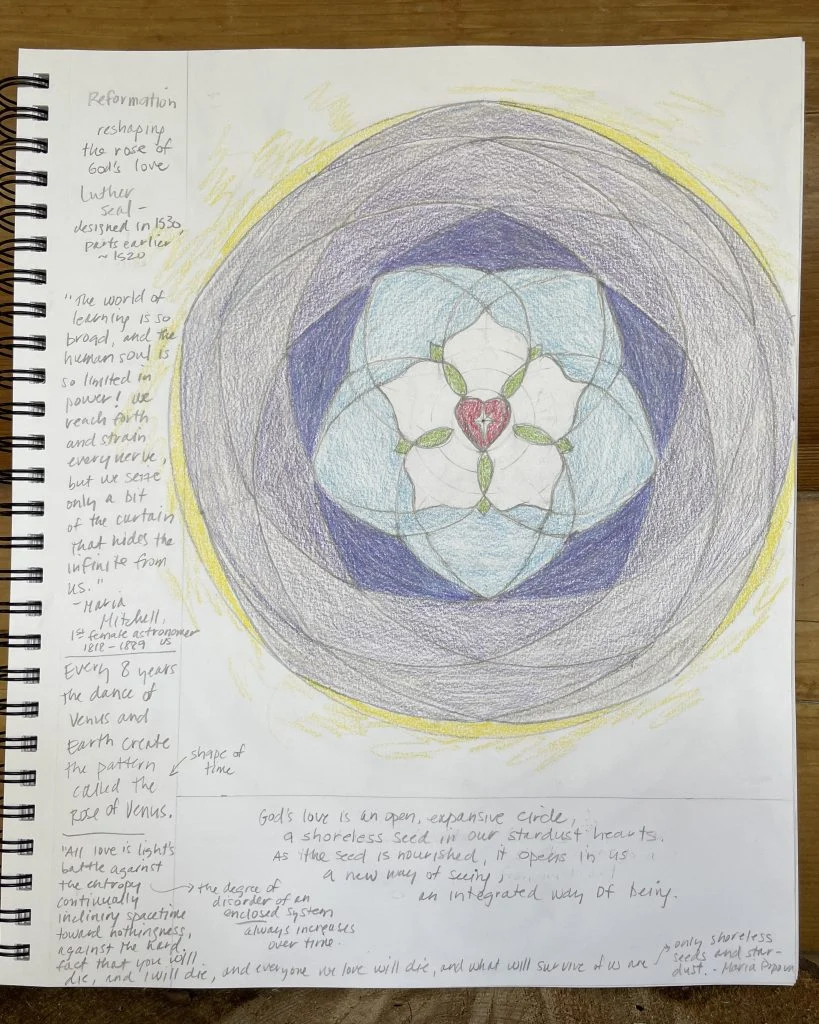 Reformation
reshaping
the rose of
God's love
Luther
seal -
designed in 1530,
parts earlier
~ 1520
"The world of
learning is so
broad, and the
human soul is
so limited in
power! We
reach forth
and strain
every nerve,
but we seize
only a bit
of the curtain
that hides the
infinite from
us."
- Maria
Mitchell,
1st female astronomer
1818 - 1889 US
Every 8 years
the dance of
Venus and
Earth create
the pattern
called the
Rose of Venus.
shape of
time
"All love is light's
battle against
the entropy
continually
inclining spacetime
toward nothingness,
against the hard
fact that you will
die, and I will die, and everyone we love will die, and what will survive of us are
only shoreless
seeds and star-
dust. - Maria Popova
the degree of
disorder of an
enclosed system
always increases
over time.
God's love is an open, expansive circle,
a shoreless seed in our stardust hearts.
As the seed is nourished, it opens in us
a new way of seeing,
an integrated way of being.